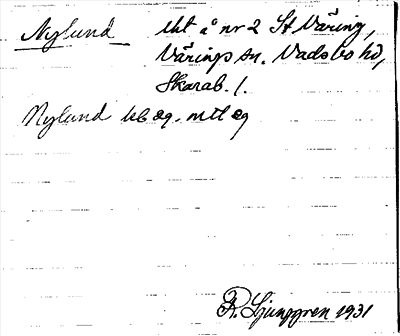 Nylund lht å nr 2 St Väring,
Värings sn. Vadsbo hd,
Skarab. l.
Nylund kb æg. mtl æg
R. Ljunggren 1931